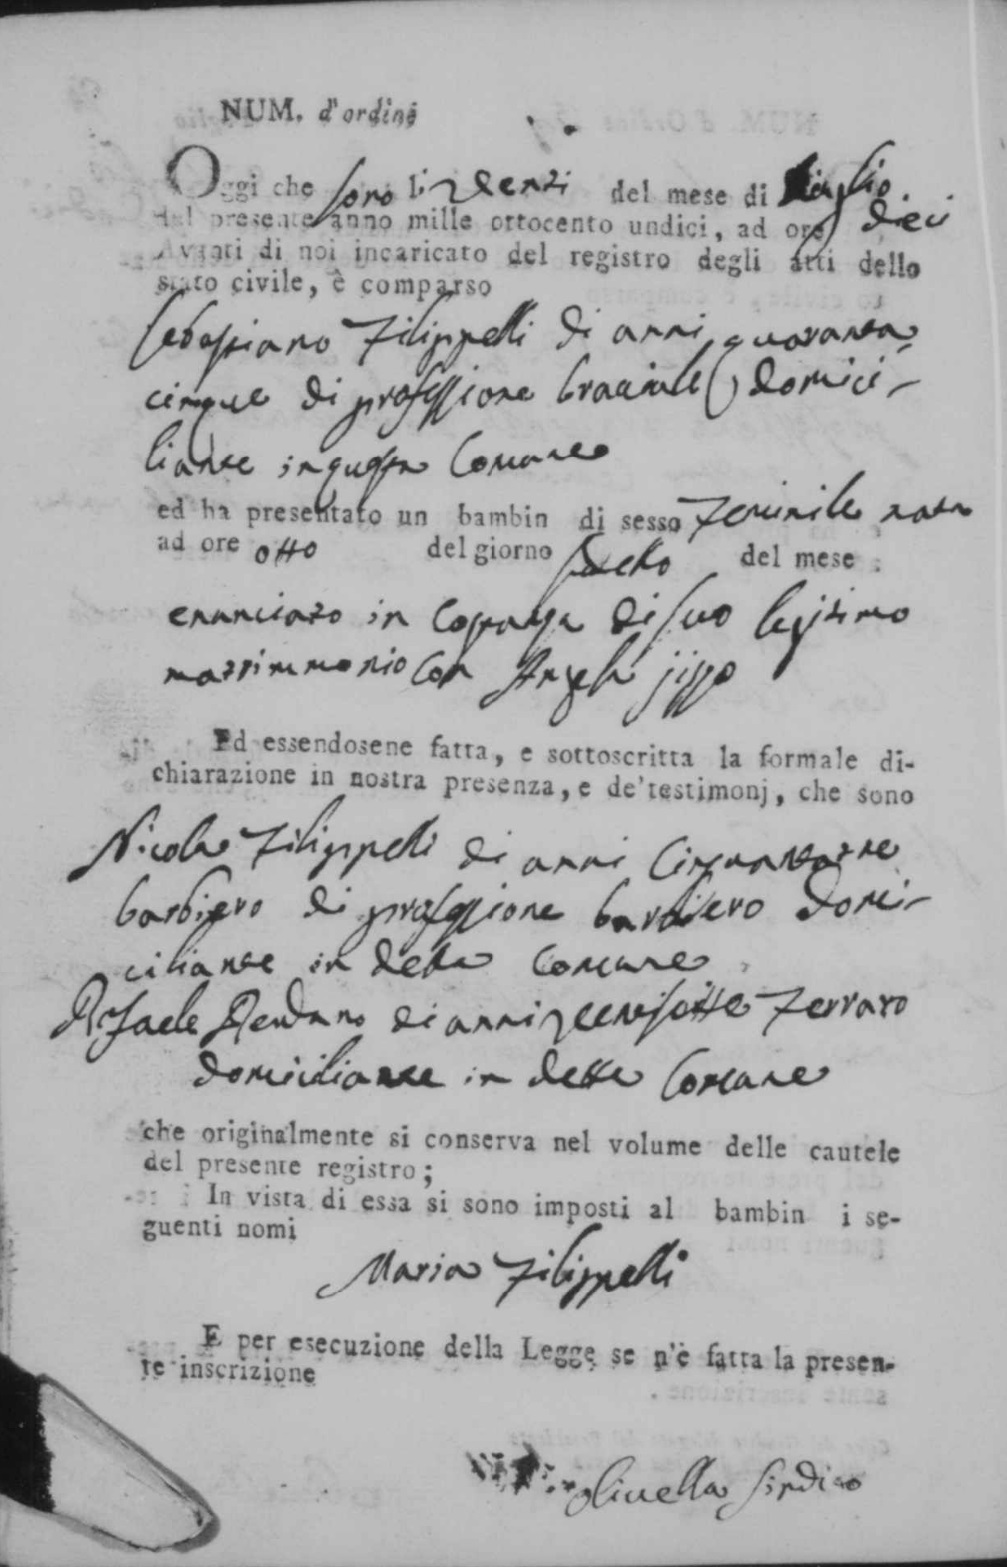 NUM. d'ordine
Oggi che sono li venti del mese di luglio
del presente anno mille ottocento undici, ad ore dieci
Avanti di noi incaricato del registro degli atti dello
stato civile, è comparso
Sebastiano Filippelli di anni quaranta
cinque di professione bracciale domici-
liante in questa Comune
ed ha presentato un bambin di sesso feminile nata
ad ore otto del giorno sudetto del mese
enunciato in Costanza di suo legitimo
matrimmonio con Angela
Ed essendosene fatta, e sottoscritta la formale di-
chiarazione in nostra presenza, e de'testimonj, che sono
Nicola Filippelli di anni
barbiero di professione barbiero domi-
ciliante in detta Comune
Rafaele Rendano di anni ventisette Ferraro
domiciliante in detta Comune
che originalmente si conserva nel volume delle cautele
del presente registro;
In vista di essa si sono imposti al bambin i se-
guenti nomi
Maria Filippelli
E per esecuzione della Legge se n'è fatta la presen-
te inscrizione
Olivella Sindico